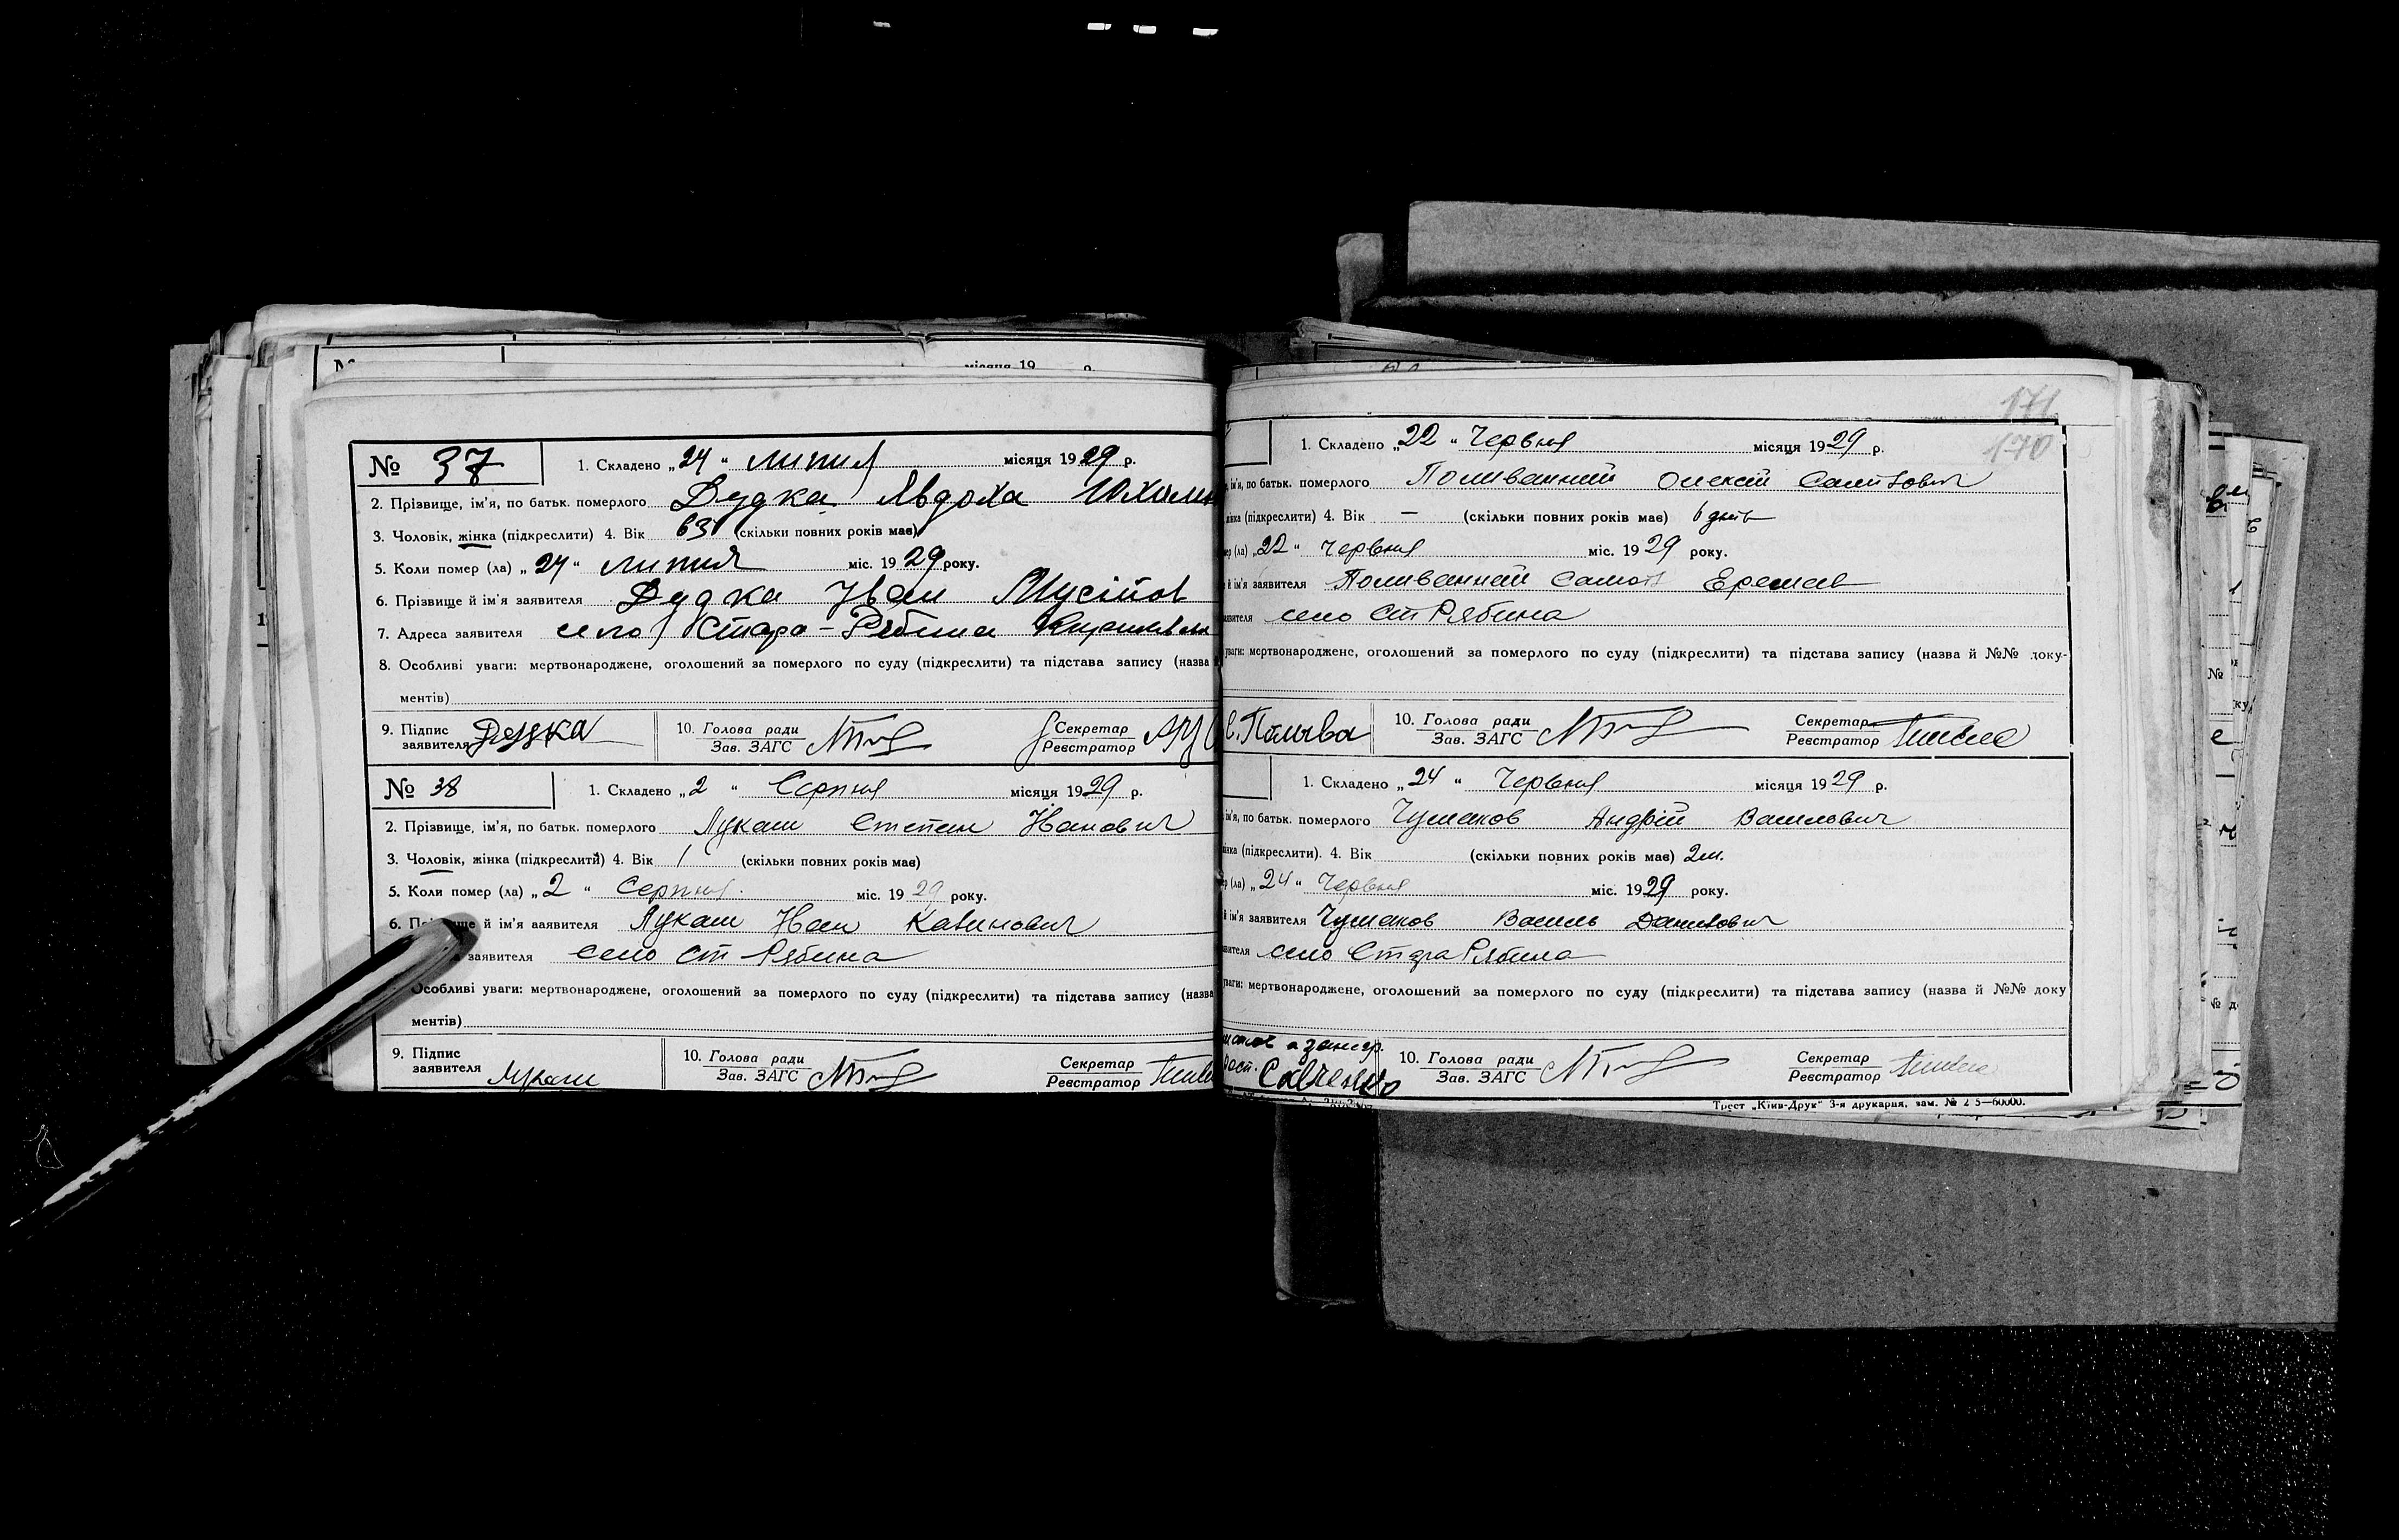 № місяця 19 р.
№ 37 1. Складено „24“ липня місяця 1929 р.
2. Прізвище, ім'я, по батьк. померлого Дудка Явдоха Юхим
3. Чоловік, жінка (підкреслити) 4. Вік 63 (скільки повних років має)
5. Коли помер (ла) „24“ липня міс. 1929 року.
6. Прізвище й ім'я заявителя Дудка Іван Мусійов
7. Адреса заявителя село Стара-Рябина
8. Особливі уваги: мертвонароджене, оголошений за померлого по суду (підкреслити) та підстава запису (назва
ментів)
9. Підпис заявителя Дудка 10. Голова ради Зав. ЗАГС Секретар Реєстратор
№ 38 1. Складено „2“ Серпня місяця 1929 р.
2. Прізвище, ім'я, по батьк. померлого Лукаш Степан Іванович
3. Чоловік, жінка (підкреслити) 4. Вік 1 (скільки повних років має)
5. Коли помер (ла) „2“ Серпня міс. 1929 року.
6. й ім'я заявителя Лукаш Іван Калинович
заявителя село Ст Рябина
Особливі уваги: мертвонароджене, оголошений за померлого по суду (підкреслити) та підстава запису (назва
ментів)
9. Підпис заявителя Лукаш 10. Голова ради Зав. ЗАГС Секретар Реєстратор
171
170
1. Складено „22“ Червня місяця 1929 р.
ім'я, по батьк. померлого Поливанний Олексій Самійлович
(підкреслити) 4. Вік — (скільки повних років має) 6 днів
(ла) „22“ Червня міс. 1929 року.
й ім'я заявителя Поливанний Єремієв
село Ст Рябина
уваги: мертвонароджене, оголошений за померлого по суду (підкреслити) та підстава запису (назва й №№ доку-
10. Голова ради Зав. ЗАГС Секретар Реєстратор
1. Складено „24“ Червня місяця 1929 р.
ім'я, по батьк. померлого Чумаков Андрій Васильович
(підкреслити). 4. Вік (скільки повних років має) 2 м.
(ла) „24“ Червня міс. 1929 року.
й ім'я заявителя Чумаков Василь Данилович
село Стара Рябина
уваги: мертвонароджене, оголошений за померлого по суду (підкреслити) та підстава запису (назва й №№ доку
Савченко 10. Голова ради Зав. ЗАГС Секретар Реєстратор
Трест „Київ-Друк“ 3-я друкарня, зам. №